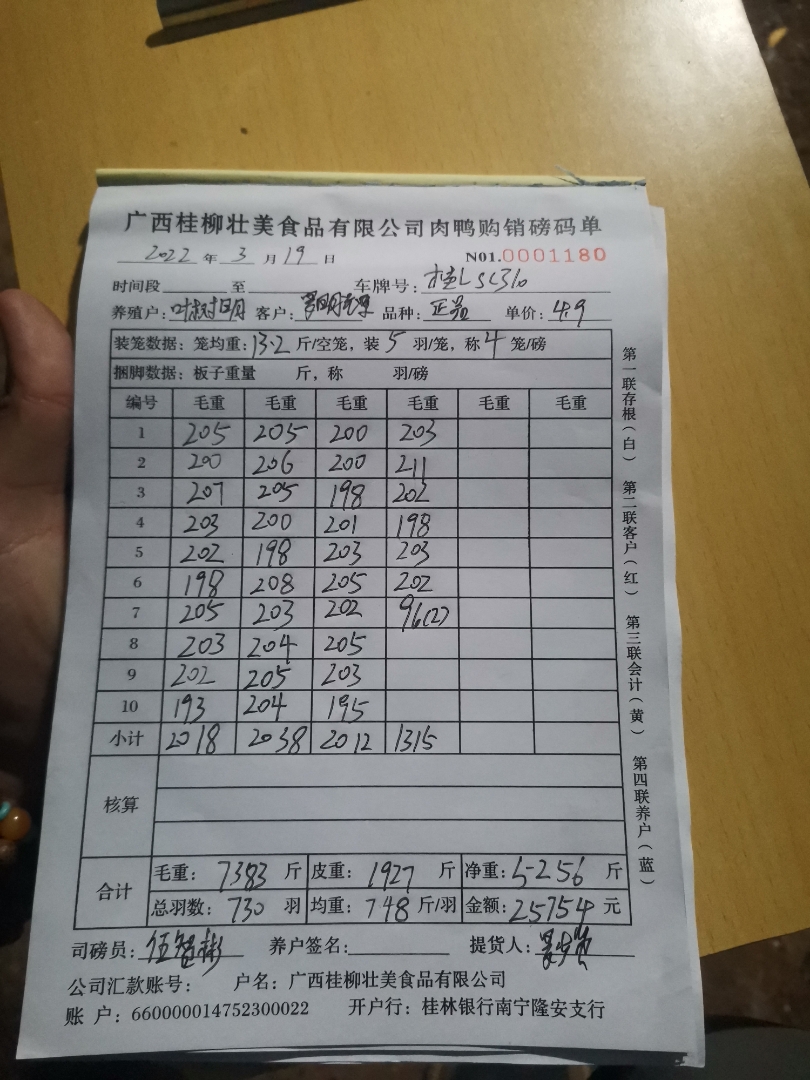 广西桂柳壮美食品有限公司肉鸭购销磅码单
2022 年 3 月 19 日 N01.0001180
时间段 至 车牌号：桂LSC310
养殖户：叶树明 客户： 品种：正品 单价：4.9
装笼数据：笼均重：13.2 斤/空笼，装 5 羽/笼，称 4 笼/磅
捆脚数据：板子重量 斤，称 羽/磅
编号 毛重 毛重 毛重 毛重 毛重 毛重
1 205 205 200 203
2 200 206 200 211
3 207 205 198 202
4 203 200 201 198
5 202 198 203 203
6 198 208 205 202
7 205 203 202 96(2)
8 203 204 205
9 202 205 203
10 193 204 195
小计 2018 2038 2012 1315
核算
合计
毛重：7383 斤 皮重：1927 斤 净重：5256 斤
总羽数：730 羽 均重：748 斤/羽 金额：25754 元
司磅员：伍智彬 养户签名： 提货人：
公司汇款账号： 户名：广西桂柳壮美食品有限公司
账 户：660000014752300022 开户行：桂林银行南宁隆安支行
第一联存根（白） 第二联客户（红） 第三联会计（黄） 第四联养户（蓝）